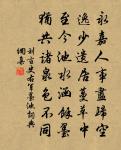 永嘉人事盡歸空
逸少遺居蔓草中
至今池水涵餘墨
獨共諸泉色不同
劉言史右軍墨池詞典
網集